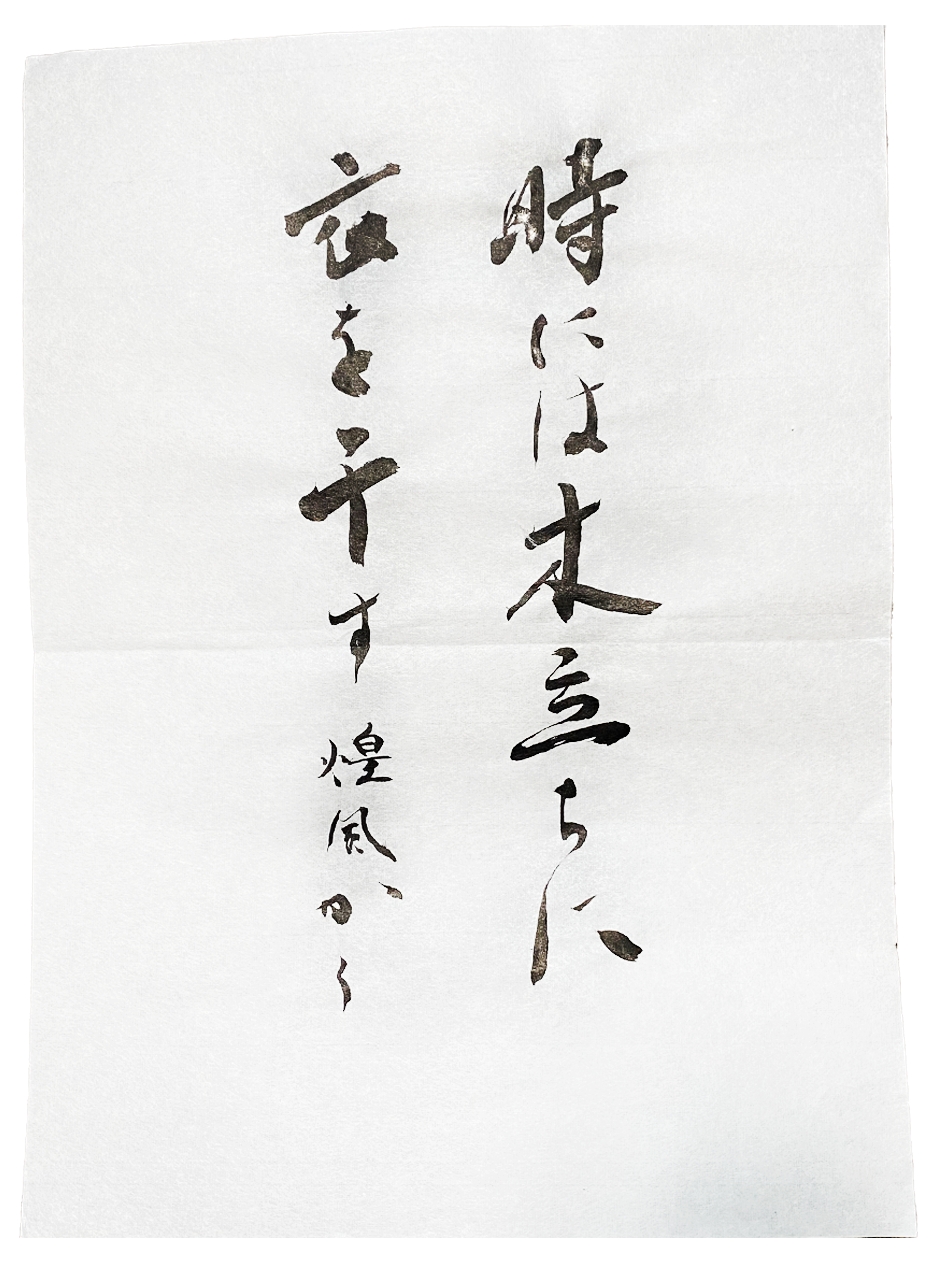 時には木立ちに
衣を干す煌風から